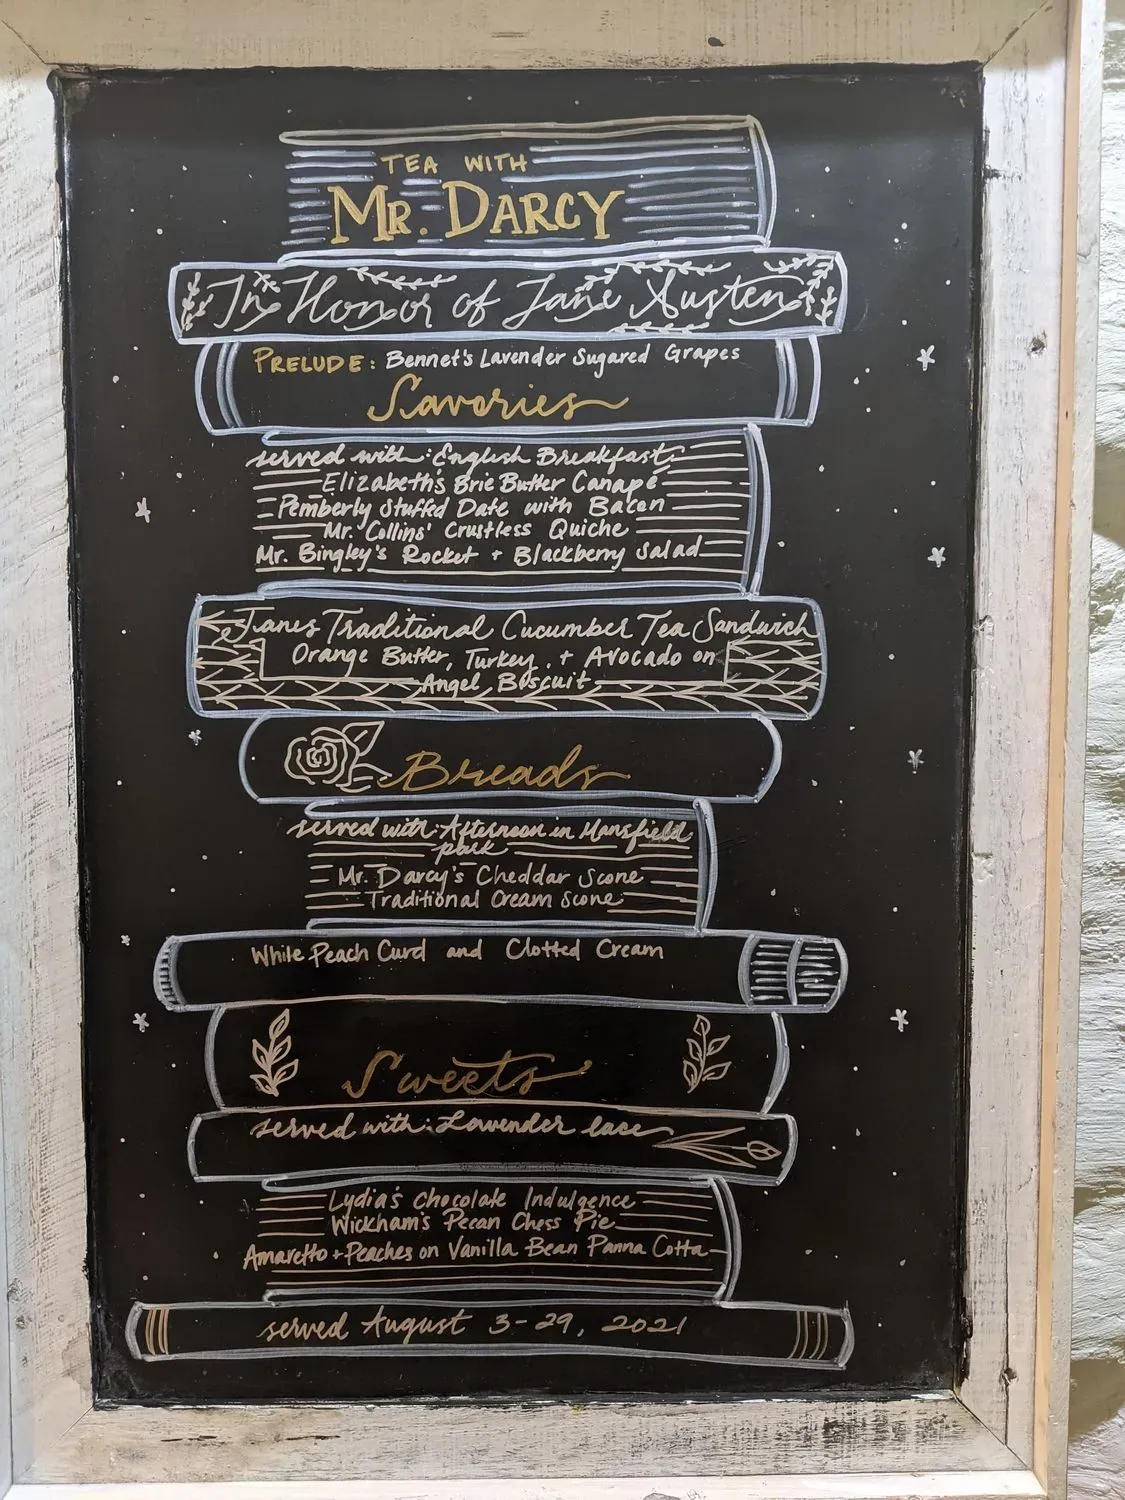 TEA WITH
MR. DARCY
In Honor of Jane Austen
PRELUDE: Bennet's Lavender Sugared Grapes
Savories
served with: English Breakfast
Elizabeth's Brie Butter Canapé
Pemberly Stuffed Date with Bacon
Mr. Collins' Crustless Quiche
Mr. Bingley's Rocket + Blackberry Salad
Janes Traditional Cucumber Tea Sandwich
Orange Butter, Turkey, + Avocado on
Angel Biscuit
Breads
served with: Afternoon in Mansfield
park
Mr. Darcy's Cheddar Scone
Traditional Cream Scone
White Peach Curd and Clotted Cream
Sweets
served with: Lavender lace
Lydia's Chocolate Indulgence
Wickham's Pecan Chess Pie
Amaretto + Peaches on Vanilla Bean Panna Cotta
served August 3-29, 2021